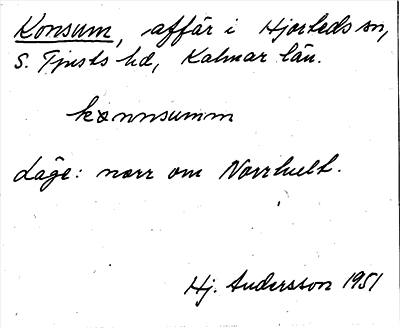 Konsum, affär i Hjorteds sn,
S. Tjusts hd, Kalmar län.
kannsumm
Läge: norr om Norrhult.
Hj. Andersson 1951